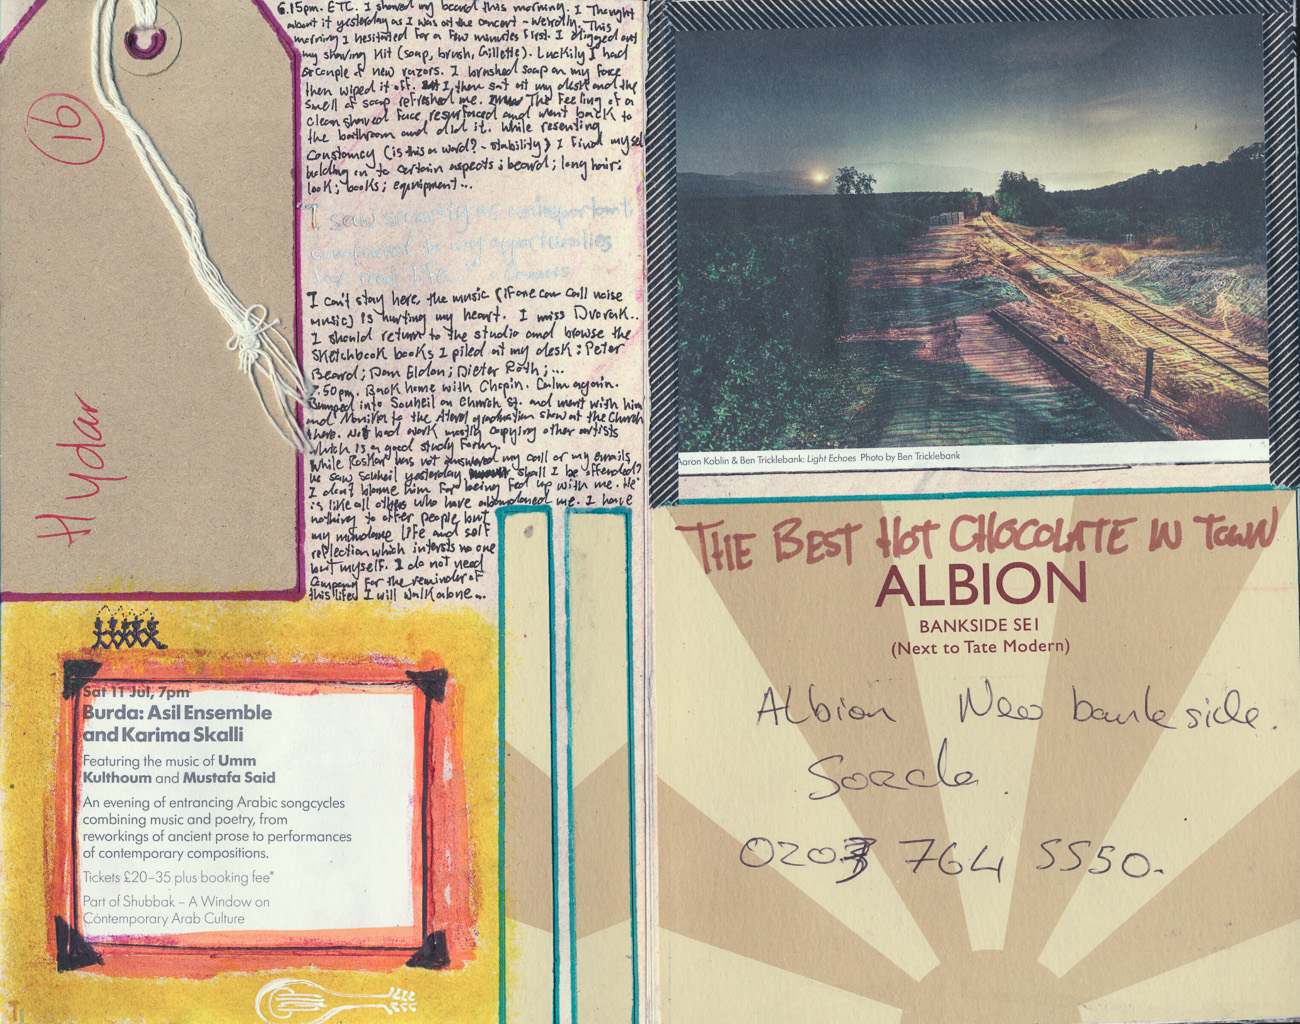 16
Hydar
6.15pm. ETC. I shaved my beard this morning. I thought
about it yesterday as I was at the concert - weirdly. This
morning I hesitated for a few minutes first. I digged out
my shaving kit (soap, brush, Gillette). Luckily I had
a couple of new razors. I brushed soap on my face
then wiped it off. I then sat at my desk and the
smell of soap refreshed me. The feeling of a
clean shaved face resurfaced and went back to
the bathroom and did it. While resenting
constancy (is this a word? - stability) I find myself
holding on to certain aspects: beard; long hair;
look; books; equipment...
"I saw security as unimportant
compared to my opportunities
for real life."
I can't stay here, the music (if one can call noise
music) is hurting my heart. I miss Dvorak..
I should return to the studio and browse the
sketchbook books I piled at my desk: Peter
Beard; Dan Eldon; Dieter Roth;...
7.50pm. Back home with Chopin. Calm again.
Bumped into Souheil on Church St. and went with him
and to the graduation show at the Church
there. Not bad work mostly copying other artists
which is a good study form.
While was not answered my call or my emails
he saw Souheil yesterday. shall I be offended?
I don't blame him for being fed up with me. He
is like all others who have abandoned me. I have
nothing to offer people but
my mundane life and self
reflection which interests no one
but myself. I do not need
company for the reminder of
this life, I will walk alone...
Sat 11 Jul, 7pm
Burda: Asil Ensemble
and Karima Skalli
Featuring the music of Umm
Kulthoum and Mustafa Said
An evening of entrancing Arabic songcycles
combining music and poetry, from
reworkings of ancient prose to performances
of contemporary compositions.
Tickets £20–35 plus booking fee*
Part of Shubbak – A Window on
Contemporary Arab Culture
Aaron Koblin & Ben Tricklebank: Light Echoes Photo by Ben Tricklebank
THE BEST HOT CHOCOLATE IN TOWN
ALBION
BANKSIDE SE1
(Next to Tate Modern)
Albion Neo bankside.
0203 764 5550.